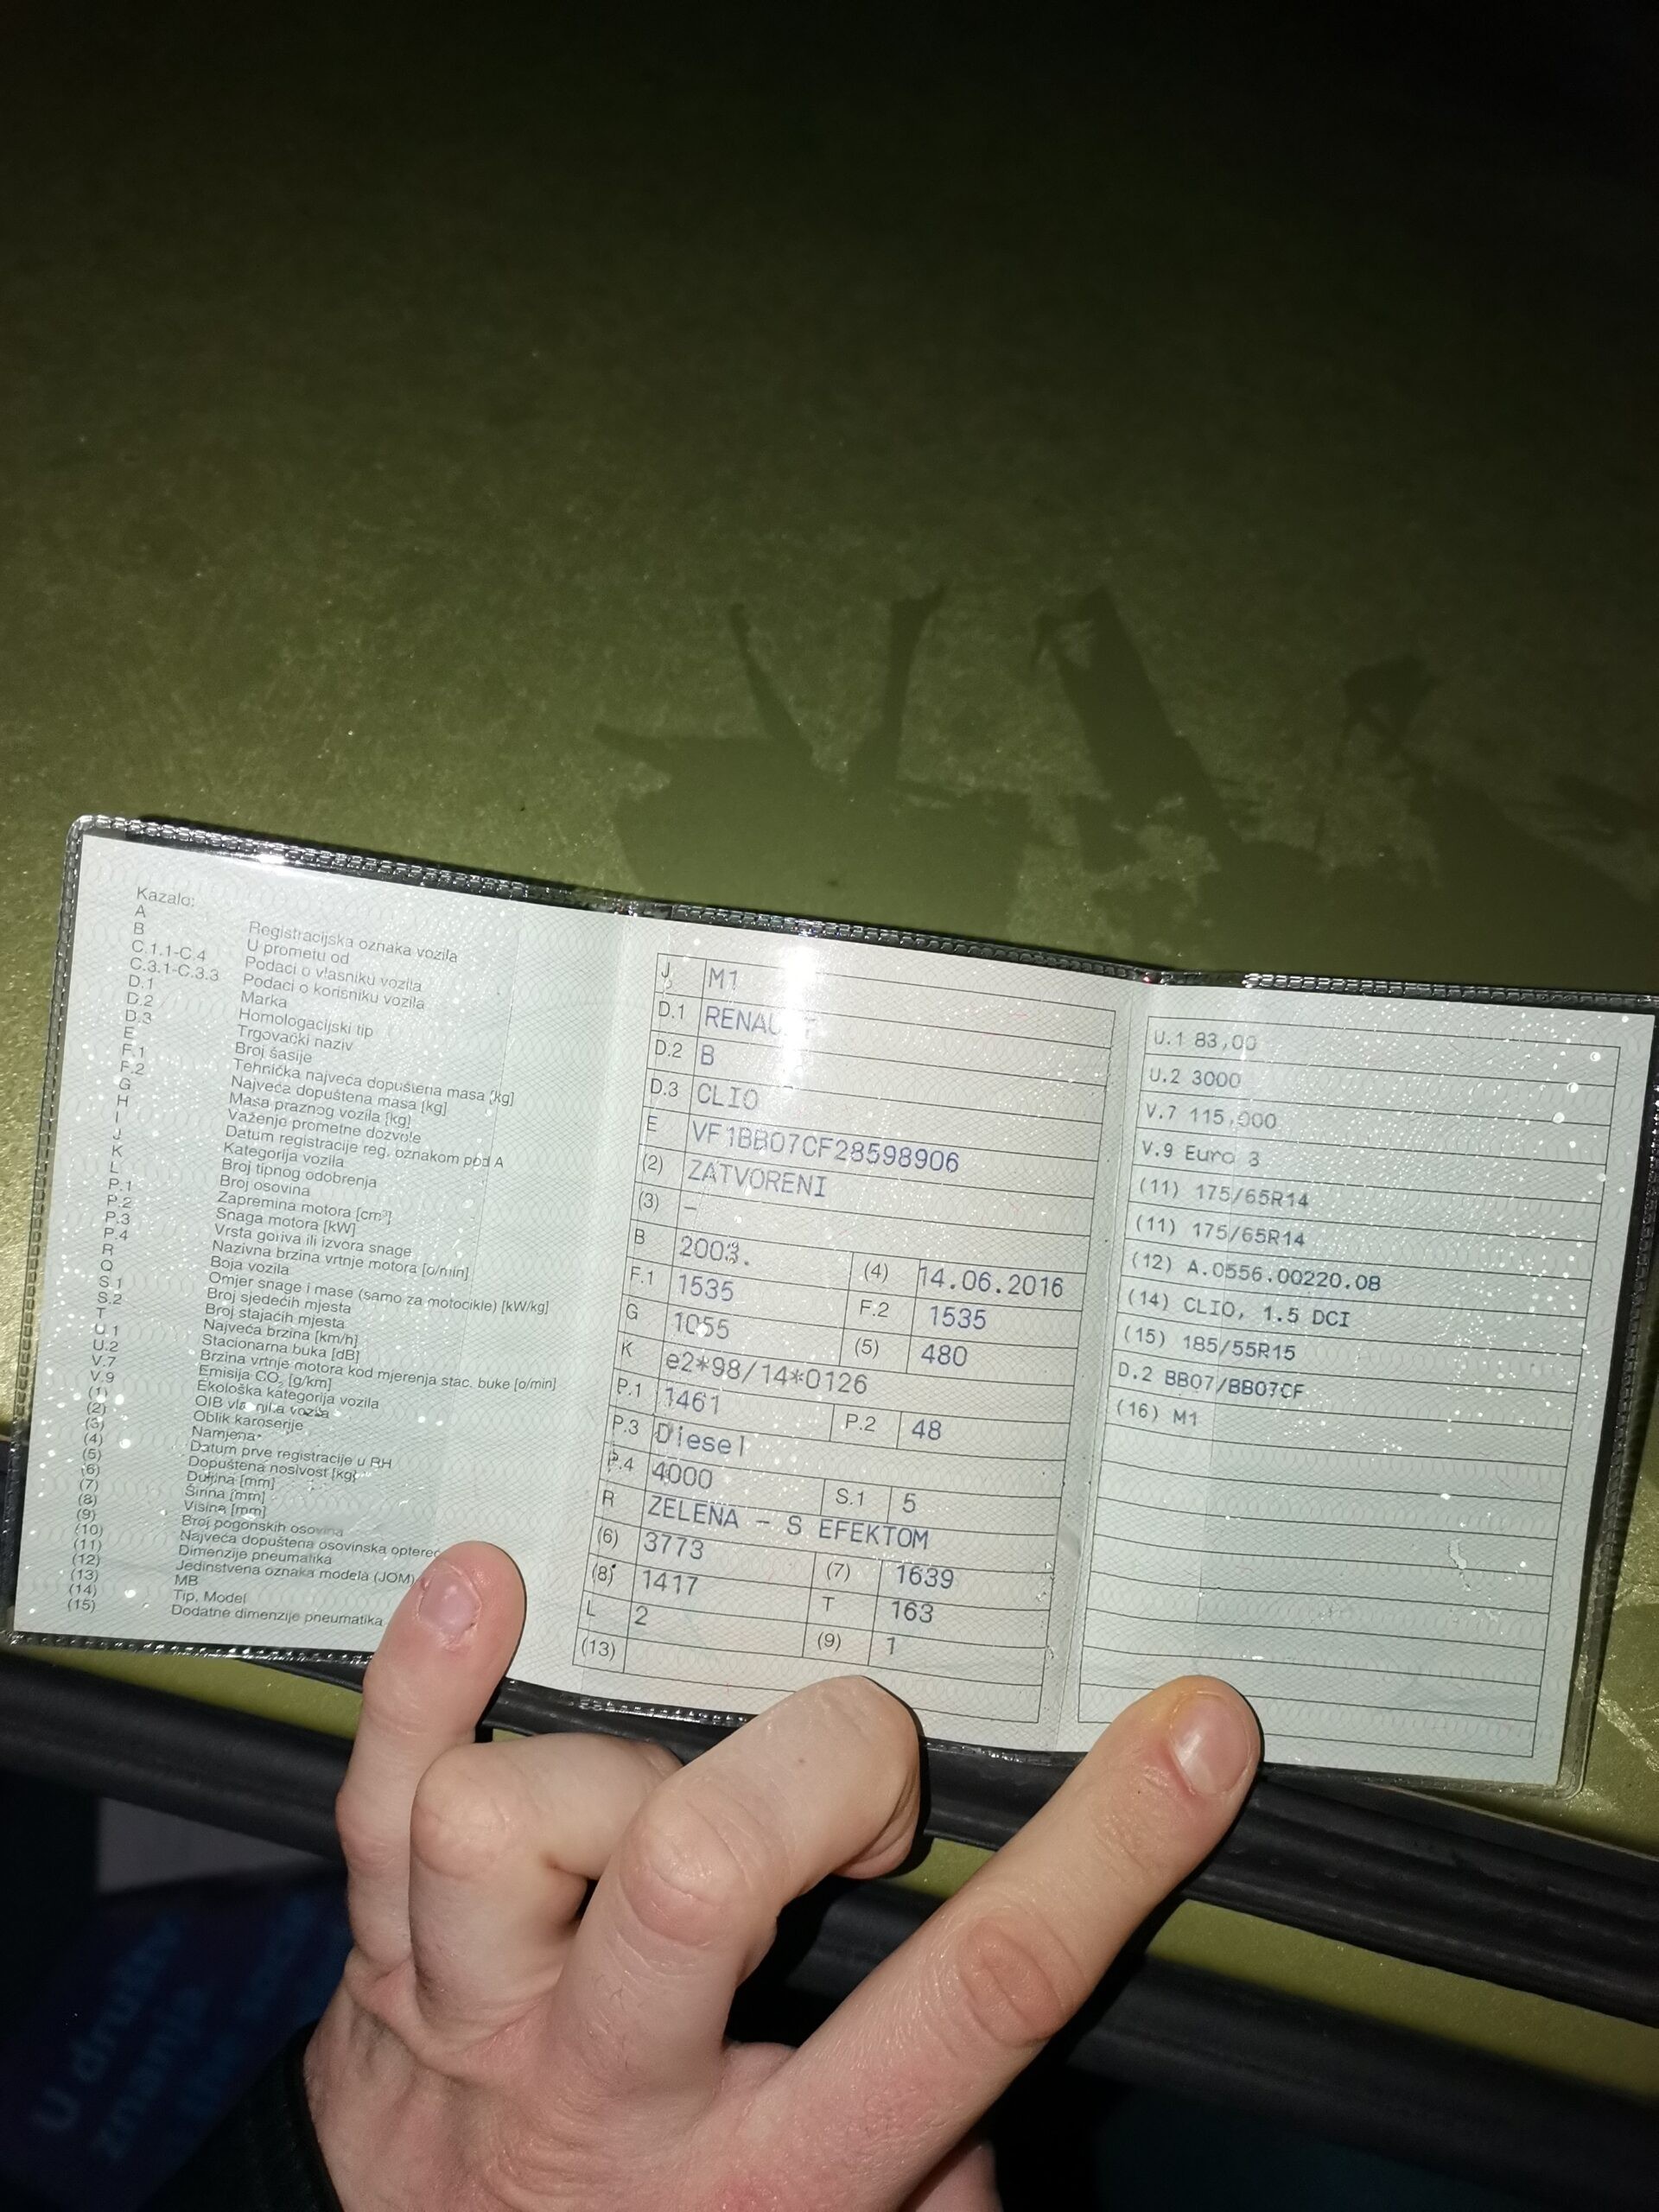 Kazalo:
A Registracijska oznaka vozila
B U prometu od
C.1.1-C.4 Podaci o vlasniku vozila
C.3.1-C.3.3 Podaci o korisniku vozila
D.1 Marka
D.2 Homologacijski tip
D.3 Trgovački naziv
E Broj šasije
F.1 Tehnička najveća dopuštena masa [kg]
F.2 Najveća dopuštena masa [kg]
G Masa praznog vozila [kg]
H Važenje prometne dozvole
I Datum registracije reg. oznakom pod A
J Kategorija vozila
K Broj tipnog odobrenja
L Broj osovina
P.1 Zapremina motora [cm³]
P.2 Snaga motora [kW]
P.3 Vrsta goriva ili izvora snage
P.4 Nazivna brzina vrtnje motora [o/min]
R Boja vozila
Q Omjer snage i mase (samo za motocikle) [kW/kg]
S.1 Broj sjedećih mjesta
S.2 Broj stajaćih mjesta
T Najveća brzina [km/h]
U.1 Stacionarna buka [dB]
U.2 Brzina vrtnje motora kod mjerenja stac. buke [o/min]
V.7 Emisija CO₂ [g/km]
V.9 Ekološka kategorija vozila
(1) OIB vlasnika vozila
(2) Oblik karoserije
(3) Namjena
(4) Datum prve registracije u RH
(5) Dopuštena nosivost [kg]
(6) Duljina [mm]
(7) Širina [mm]
(8) Visina [mm]
(9) Broj pogonskih osovina
(10) Najveća dopuštena osovinska
(11) Dimenzije pneumatika
(12) Jedinstvena oznaka modela (JOM)
(13) MB
(14) Tip, Model
(15) Dodatne dimenzije pneumatika
J M1
D.1 RENAULT
D.2 B
D.3 CLIO
E VF1BB07CF28598906
(2) ZATVORENI
(3) –
B 2003. (4) 14.06.2016
F.1 1535 F.2 1535
G 1055 (5) 480
K e2*98/14*0126
P.1 1461 P.2 48
P.3 Diesel
P.4 4000 S.1 5
R ZELENA – S EFEKTOM
(6) 3773 (7) 1639
(8) 1417 T 163
L 2 (9) 1
(13)
U.1 83,00
U.2 3000
V.7 115,000
V.9 Euro 3
(11) 175/65R14
(11) 175/65R14
(12) A.0556.00220.08
(14) CLIO, 1.5 DCI
(15) 185/55R15
D.2 BB07/BB07CF
(16) M1
U društvu
znanja